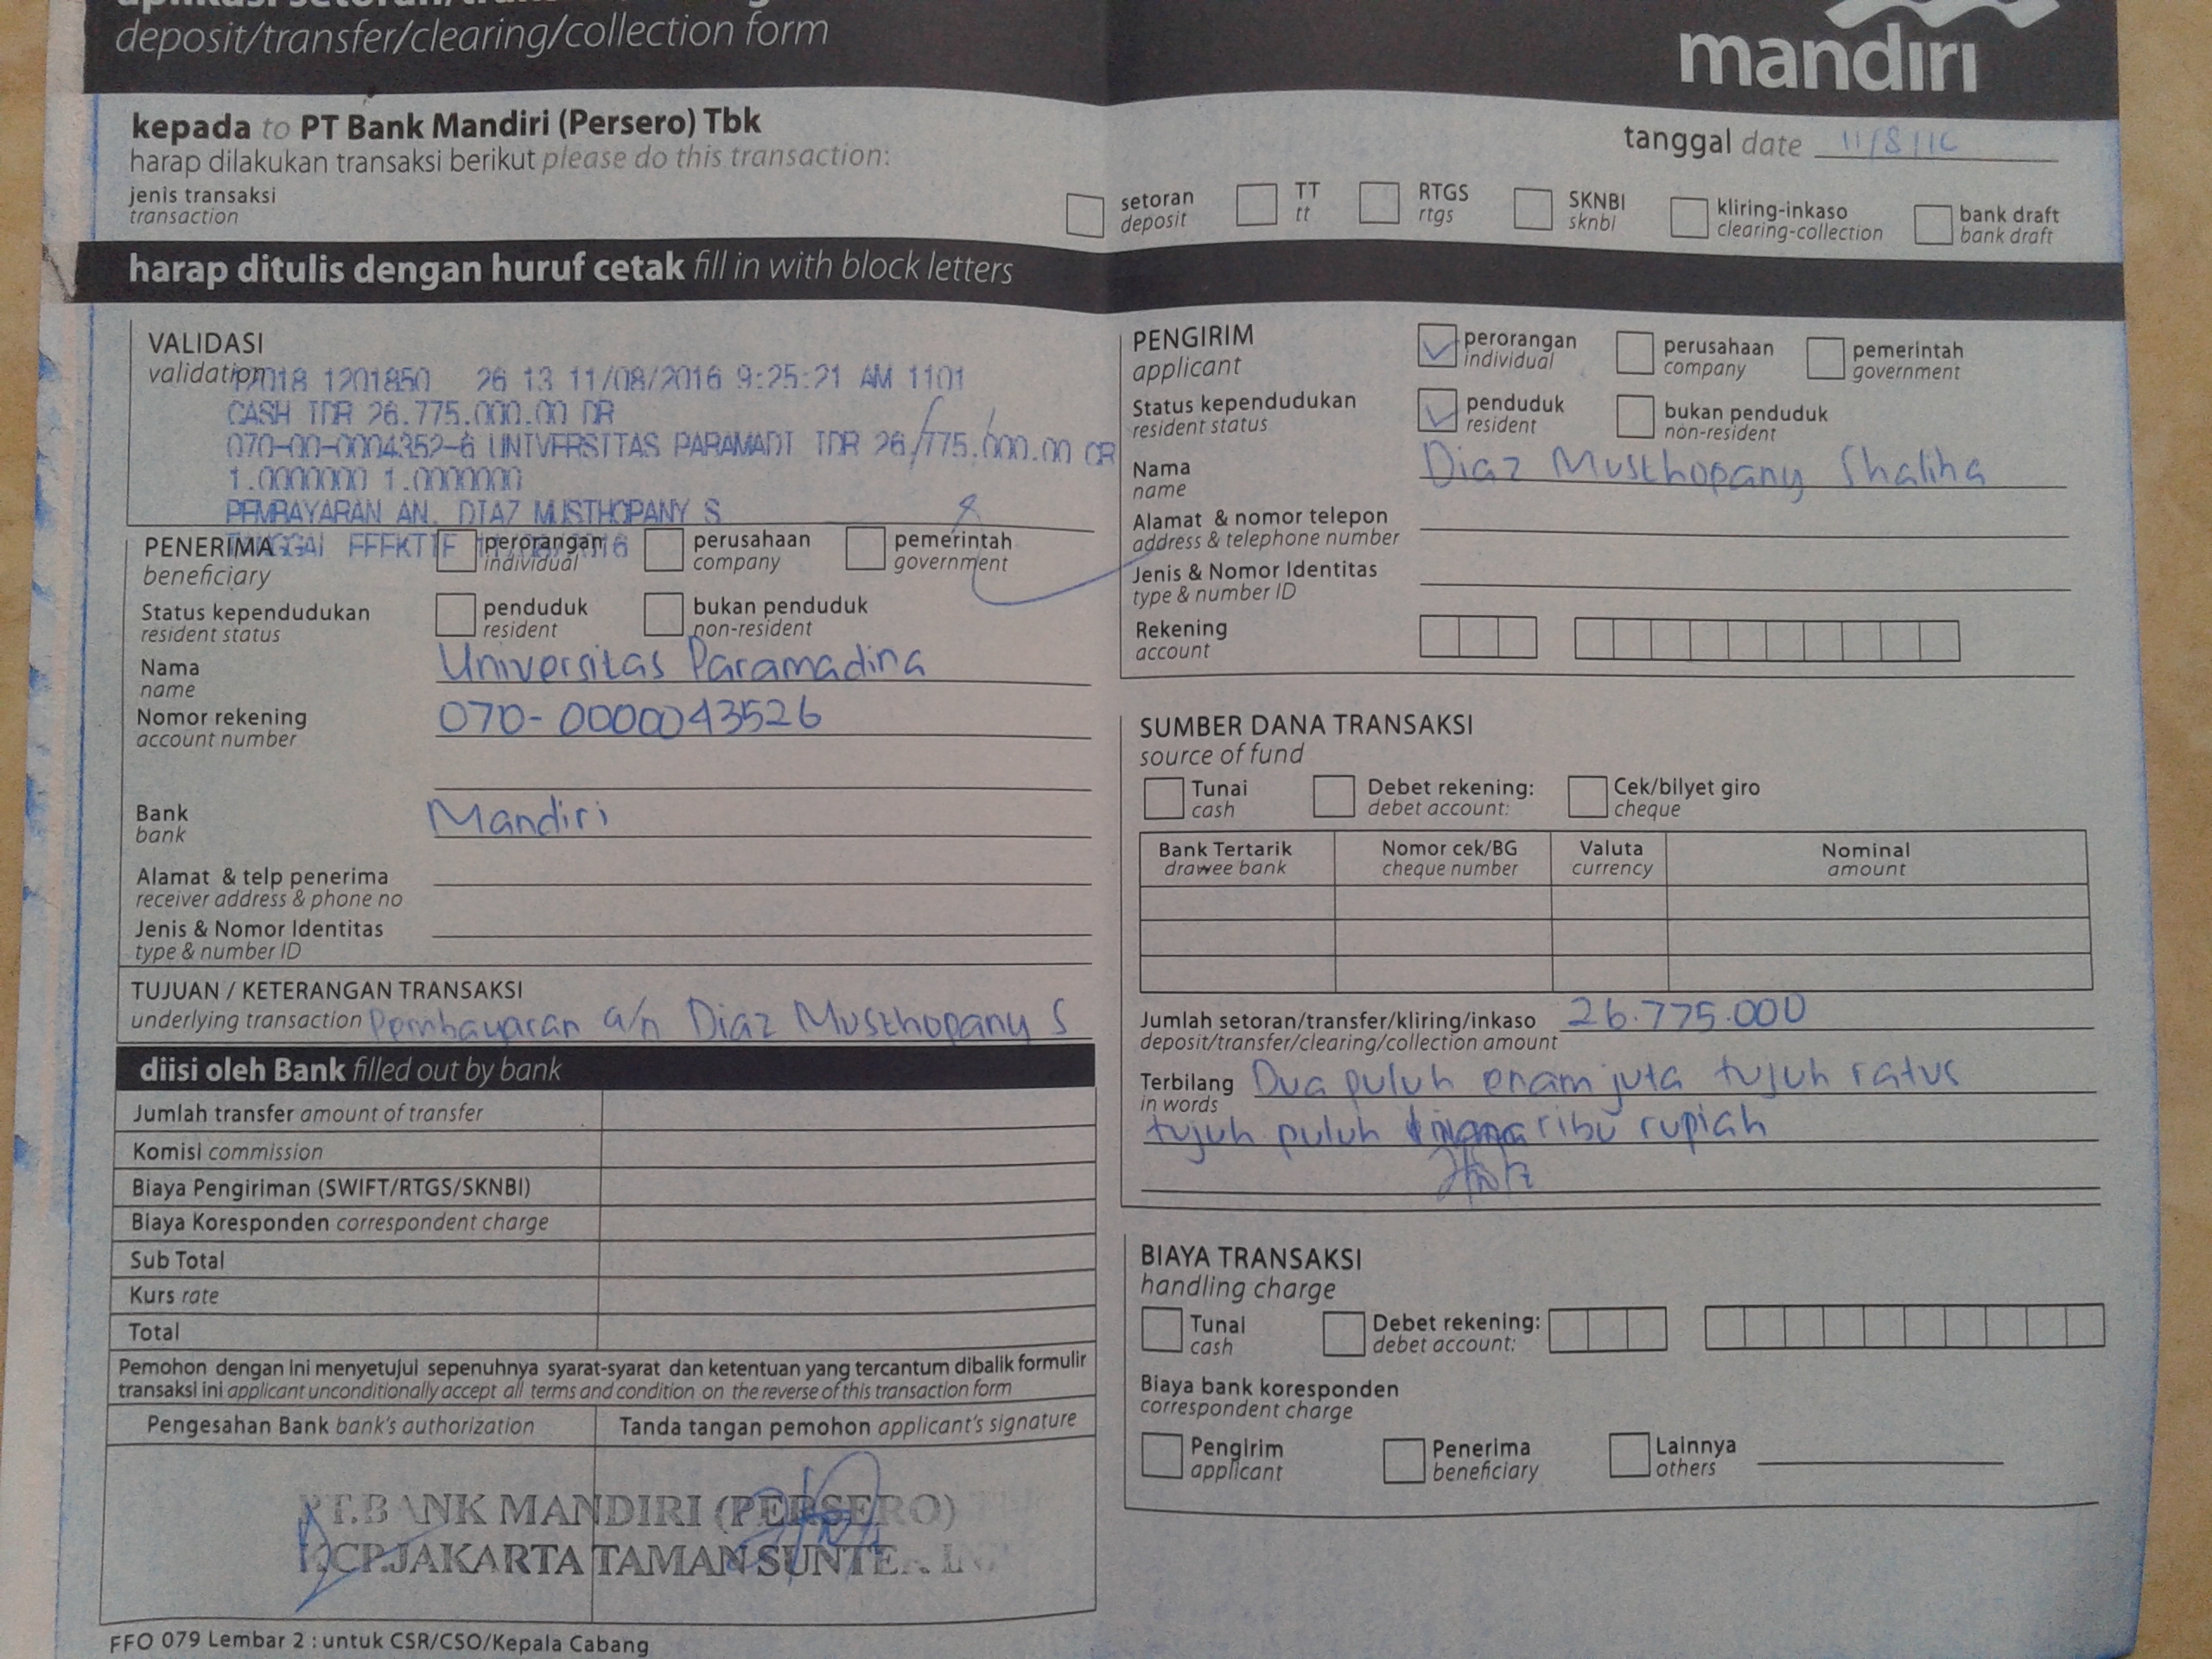 deposit/transfer/clearing/collection form
mandırı
kepada to PT Bank Mandiri (Persero) Tbk
tanggal date 11/8/16
harap dilakukan transaksi berikut please do this transaction:
jenis transaksi
transaction
setoran
deposit
TT
tt
RTGS
rtgs
SKNBI
sknbI
kliring-inkaso
clearing-collection
bank draft
bank draft
harap ditulis dengan huruf cetak fill in with block letters
VALIDASI
validation
1201850 26 13 11/08/2016 9:25:21 AM 1101
CASH IDR 26.775.000.00 DR
070-00-0004352-6 UNIVERSITAS PARAMADI IDR 26.775.000.00 CR
1.0000000 1.0000000
PEMBAYARAN AN. DIAZ MUSTHOPANY S
TANGGAL EFEKTIF 11/08/2016
PENERIMA
beneficiary
perorangan
individual
perusahaan
company
pemerintah
government
Status kependudukan
resident status
penduduk
resident
bukan penduduk
non-resident
Nama
name
Universitas Paramadina
Nomor rekening
account number
070-0000043526
Bank
bank
Mandiri
Alamat & telp penerima
receiver address & phone no
Jenis & Nomor Identitas
type & number ID
TUJUAN / KETERANGAN TRANSAKSI
underlying transaction Pembayaran a/n Diaz Musthopany S
diisi oleh Bank filled out by bank
Jumlah transfer amount of transfer
Komisi commission
Biaya Pengiriman (SWIFT/RTGS/SKNBI)
Biaya Koresponden correspondent charge
Sub Total
Kurs rate
Total
Pemohon dengan ini menyetujui sepenuhnya syarat-syarat dan ketentuan yang tercantum dibalik formulir
transaksi ini applicant unconditionally accept all terms and condition on the reverse of this transaction form
Pengesahan Bank bank's authorization
Tanda tangan pemohon applicant's signature
PT.BANK MANDIRI (PERSERO)
KCP.JAKARTA TAMAN SUNTER
FFO 079 Lembar 2 : untuk CSR/CSO/Kepala Cabang
PENGIRIM
applicant
perorangan
individual
perusahaan
company
pemerintah
government
Status kependudukan
resident status
penduduk
resident
bukan penduduk
non-resident
Nama
name
Diaz Musthopany Shaliha
Alamat & nomor telepon
address & telephone number
Jenis & Nomor Identitas
type & number ID
Rekening
account
SUMBER DANA TRANSAKSI
source of fund
Tunai
cash
Debet rekening:
debet account:
Cek/bilyet giro
cheque
Bank Tertarik
drawee bank
Nomor cek/BG
cheque number
Valuta
currency
Nominal
amount
Jumlah setoran/transfer/kliring/inkaso 26.775.000
deposit/transfer/clearing/collection amount
Terbilang Dua puluh enam juta tujuh ratus
in words
tujuh puluh ribu rupiah
BIAYA TRANSAKSI
handling charge
Tunai
cash
Debet rekening:
debet account:
Biaya bank koresponden
correspondent charge
Pengirim
applicant
Penerima
beneficiary
Lainnya
others